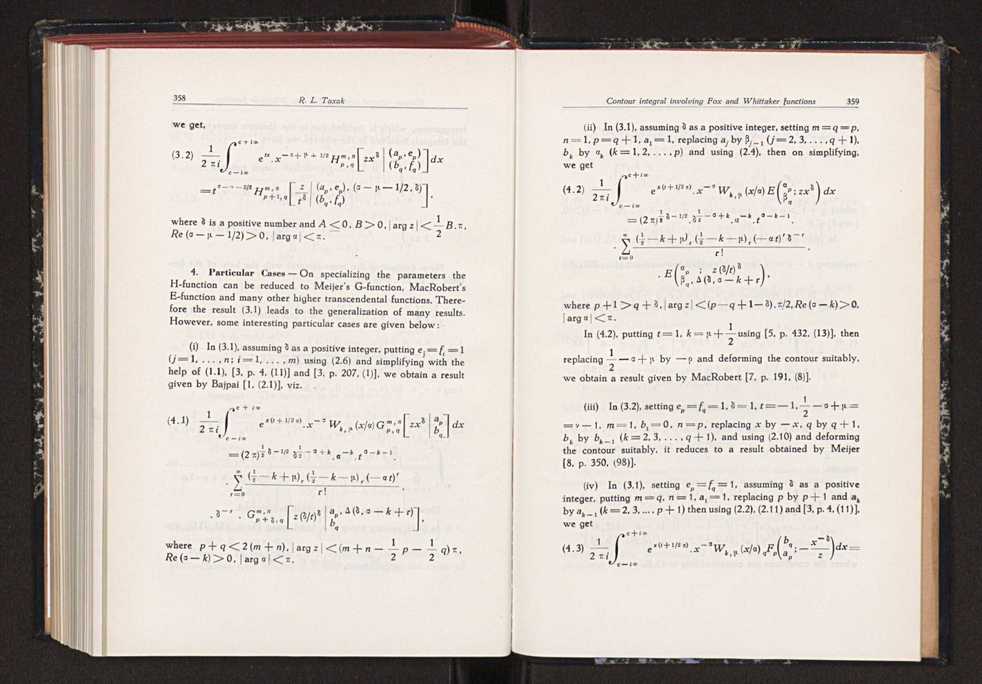 358 R. L. Taxak
we get,
(3.2) \frac{1}{2\pi i} \int_{c-i\infty}^{c+i\infty} e^{xt} . x^{-\sigma + \mu + 1/2} H_{p,q}^{m,n} [ z x^{\delta} | (a_p, e_p) (b_q, f_q) ] dx
= t^{\sigma - \mu - 3/2} H_{p+1,q}^{m,n} [ \frac{z}{t^{\delta}} | (a_p, e_p), (\sigma - \mu - 1/2, \delta) (b_q, f_q) ] ,
where δ is a positive number and A ≤ 0, B > 0, | arg z | < \frac{1}{2} B . π,
Re (σ — μ — 1/2) > 0, | arg α | < π.
4. Particular Cases — On specializing the parameters the
H-function can be reduced to Meijer's G-function, MacRobert's
E-function and many other higher transcendental functions. There-
fore the result (3.1) leads to the generalization of many results.
However, some interesting particular cases are given below:
(i) In (3.1), assuming δ as a positive integer, putting e_j = f_i = 1
(j = 1, . . . , n; i = 1, . . . , m) using (2.6) and simplifying with the
help of (1.1), [3, p. 4, (11)] and [3, p. 207, (1)], we obtain a result
given by Bajpai [1, (2.1)], viz.
(4.1) \frac{1}{2\pi i} \int_{c-i\infty}^{c+i\infty} e^{x(t + 1/2 α)} . x^{-σ} W_{k,μ} (x/α) G_{p,q}^{m,n} [ z x^{δ} | a_p b_q ] dx
= (2π)^{\frac{1}{2} δ - 1/2} δ^{\frac{1}{2} - σ + k} . α^{-k} . t^{σ - k - 1} .
. \sum_{r=0}^{∞} \frac{(\frac{1}{2} — k + μ)_r (\frac{1}{2} — k — μ)_r (— αt)^r}{r !} .
. δ^{-r} . G_{p+δ,q}^{m,n} [ z (δ/t)^{δ} | a_p, Δ (δ, σ — k + r) b_q ] ,
where p + q < 2 (m + n), | arg z | < (m + n — \frac{1}{2} p — \frac{1}{2} q) π,
Re (σ — k) > 0, | arg α | < π.
Contour integral involving Fox and Whittaker functions 359
(ii) In (3.1), assuming δ as a positive integer, setting m = q = p,
n = 1, p = q + 1, a_1 = 1, replacing a_j by β_{j-1} (j = 2, 3, . . . , q + 1),
b_k by α_k (k = 1, 2, . . . , p) and using (2.4), then on simplifying,
we get
(4.2) \frac{1}{2πi} \int_{c-i∞}^{c+i∞} e^{x(t+1/2 α)} . x^{-σ} W_{k,μ} (x/α) E ( α_p β_q : z x^{δ} ) dx
= (2π)^{\frac{1}{2} δ - 1/2} . δ^{\frac{1}{2} - σ + k} . α^{-k} . t^{σ - k - 1} .
. \sum_{r=0}^{∞} \frac{(\frac{1}{2} — k + μ)_r (\frac{1}{2} — k — μ)_r (— αt)^r δ^{-r}}{r !} .
. E ( α_p : z (δ/t)^{δ} β_q, Δ (δ, σ — k + r) ) ,
where p + 1 > q + δ, | arg z | < (p — q + 1 — δ) . π/2, Re (σ — k) > 0,
| arg α | < π.
In (4.2), putting t = 1, k = μ + \frac{1}{2} using [5, p. 432, (13)], then
replacing \frac{1}{2} — σ + μ by — ρ and deforming the contour suitably,
we obtain a result given by MacRobert [7, p. 191, (8)].
(iii) In (3.2), setting e_p = f_q = 1, δ = 1, t = — 1, \frac{1}{2} — σ + μ =
= ν — 1, m = 1, b_1 = 0, n = p, replacing x by — x, q by q + 1,
b_k by b_{k-1} (k = 2, 3, . . . , q + 1), and using (2.10) and deforming
the contour suitably, it reduces to a result obtained by Meijer
[8, p. 350, (98)].
(iv) In (3.1), setting e_p = f_q = 1, assuming δ as a positive
integer, putting m = q, n = 1, a_1 = 1, replacing p by p + 1 and a_k
by a_{k-1} (k = 2, 3, ... , p + 1) then using (2.2), (2.11) and [3, p. 4, (11)],
we get
(4.3) \frac{1}{2πi} \int_{c-i∞}^{c+i∞} e^{x(t+1/2 α)} . x^{-σ} W_{k,μ} (x/α) _qF_p ( b_q a_p ; — \frac{x^{-δ}}{z} ) dx =